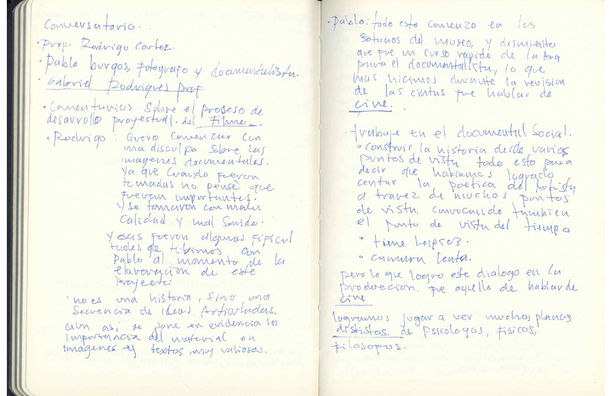 Conversatorio.
• Prof. Rodrigo Cortez
• Pablo burgos, Fotografo y documentalista.
• Gabriel Rodrigues prof.
• Comentarios sobre el proceso de
desarrollo proyectual del Filme.
• Rodrigo: Quero comenzar con
una disculpa sobre las
imagenes documentales.
ya que cuando fueron
tomadas no pense que
fueran importantes.
y se tomaron con mala
calidad y mal sonido.
y esas fueron algunas
con
Pablo al momento de la
elavoración de este
proyecto.
• no es una historia, sino una
secuencia de ideas Articuladas.
aun asi se pone en evidencia la
importancia del material en
imagenes y textos muy valiosos.
• Pablo: todo esto comenzo en los
sotanos del museo, y
que fue un curso rapido de
para el documentalista, lo que
mas hicimos durante la revision
de las cintas fue hablar de
cine.
- trabaje en el documental social.
• construir la historia desde varios
puntos de vista todo esto para
decir que habiamos logrado
centar la poetica del Artista
a travez de muchos puntos
de vista convocando tambien
el punto de vista del tiempo
• tiene
• camara lenta.
pero lo que logro este dialogo en la
produccion. fue aquello de hablar de
cine
logramos jugar a ver muchos planos
dististos. de Psicologos, Fisicos,
Filosofos.